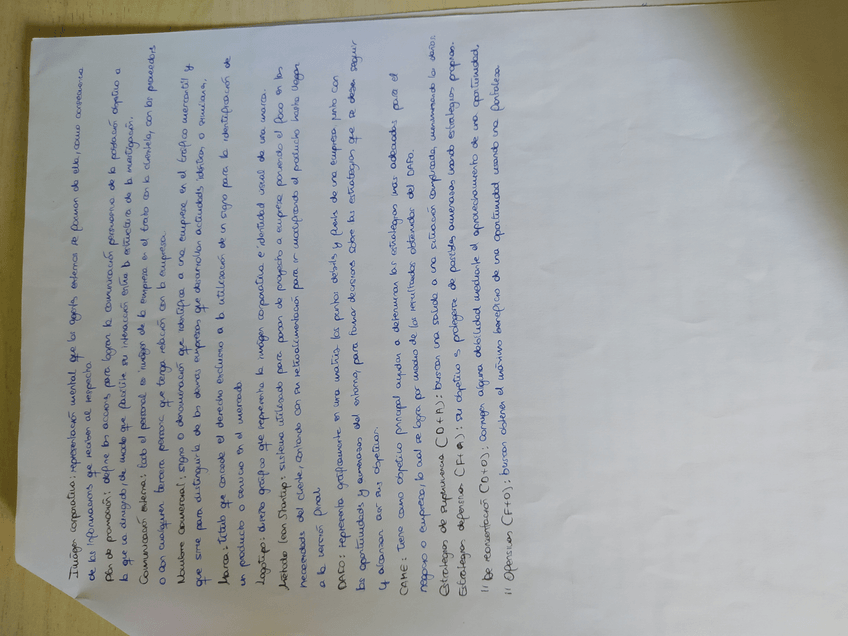 Imágen corporativa: representación mental que los agentes externos se forman de ella, como consecuencia
de las informaciones que reciben al respecto
Plan de promoción: define las acciones para lograr la comunicación persuasiva de la población objetivo a
la que va dirigido, de modo que facilite su interacción entre la estructura de la investigación.
Comunicación externa: todo el personal es imágen de la empresa en el trato con la clientela, con los proveedores
o con cualquier tercera persona que tenga relación con la empresa.
Nombre comercial: signo o denominación que identifica a una empresa en el tráfico mercantil y
que sirve para distinguirla de las demás empresas que desarrollan actividades idénticas o similares.
Marca: título que concede el derecho exclusivo a la utilización de un signo para la identificación de
un producto o servicio en el mercado
Logotipo: diseño gráfico que representa la imágen corporativa e identidad visual de una marca.
Método lean Startup: sistema utilizado para pasar de proyecto a empresa poniendo el foco en las
necesidades del cliente, contando con su retroalimentación para ir modificando el producto hasta llegar
a la versión final.
DAFO: representa gráficamente en una matriz los puntos débiles y fuertes de una empresa junto con
las oportunidades y amenazas del entorno, para tomar decisiones sobre las estrategias que se deben seguir
y alcanzar así sus objetivos.
CAME: Tiene como objetivo principal ayudar a determinar las estrategias más adecuadas para el
negocio o empresa, lo cual se logra por medio de los resultados obtenidos del DAFO.
Estrategias de supervivencia (D+A): buscan una salida a una situación complicada, minimizando los daños.
Estrategias defensivas (F+A): su objetivo es protegerse de posibles amenazas usando estrategias propias.
" De reorientación (D+O): Corrigen alguna debilidad mediante el aprovechamiento de una oportunidad.
" Ofensivas (F+O): buscan obtener el máximo beneficio de una oportunidad usando una fortaleza